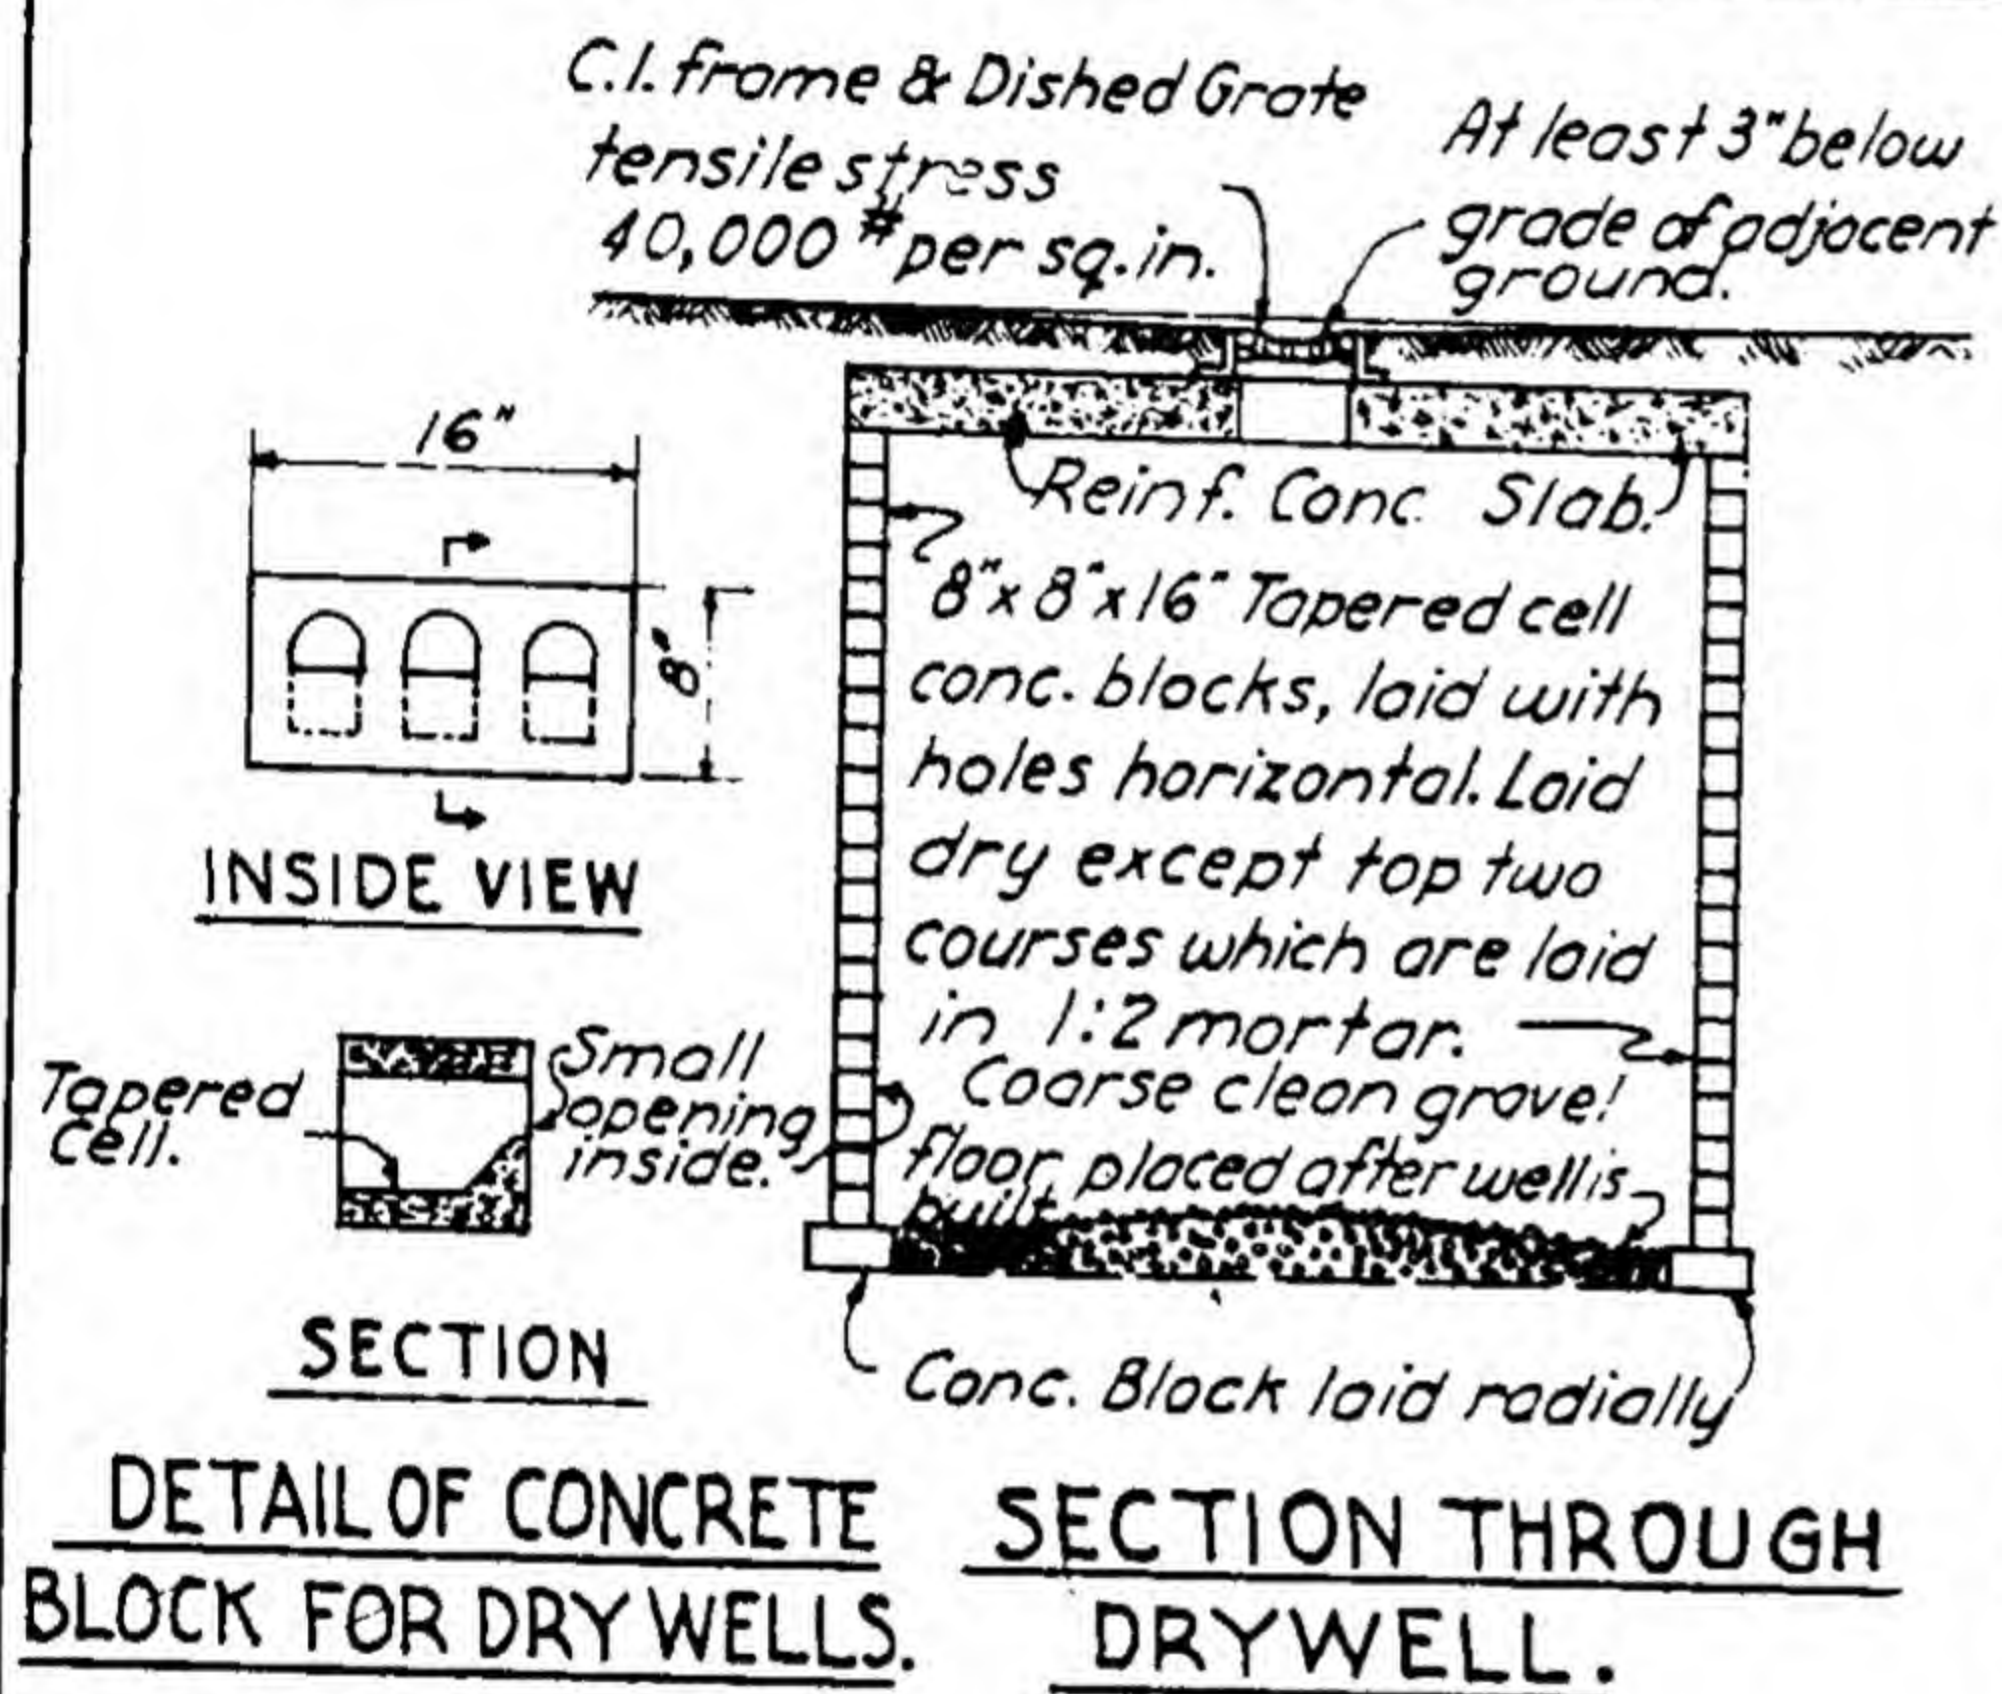 C.I. frame & Dished Grate
tensile stress
40,000 # per sq.in.
At least 3" below
grade of adjacent
ground.
16"
8"
INSIDE VIEW
Reinf. Conc. Slab.
8"x 8"x 16" Tapered cell
conc. blocks, laid with
holes horizontal. Laid
dry except top two
courses which are laid
in 1:2 mortar.
Coarse clean gravel
floor, placed after well is
built.
Tapered
cell.
Small
opening
inside.
SECTION
Conc. Block laid radially
DETAIL OF CONCRETE
BLOCK FOR DRY WELLS.
SECTION THROUGH
DRYWELL.